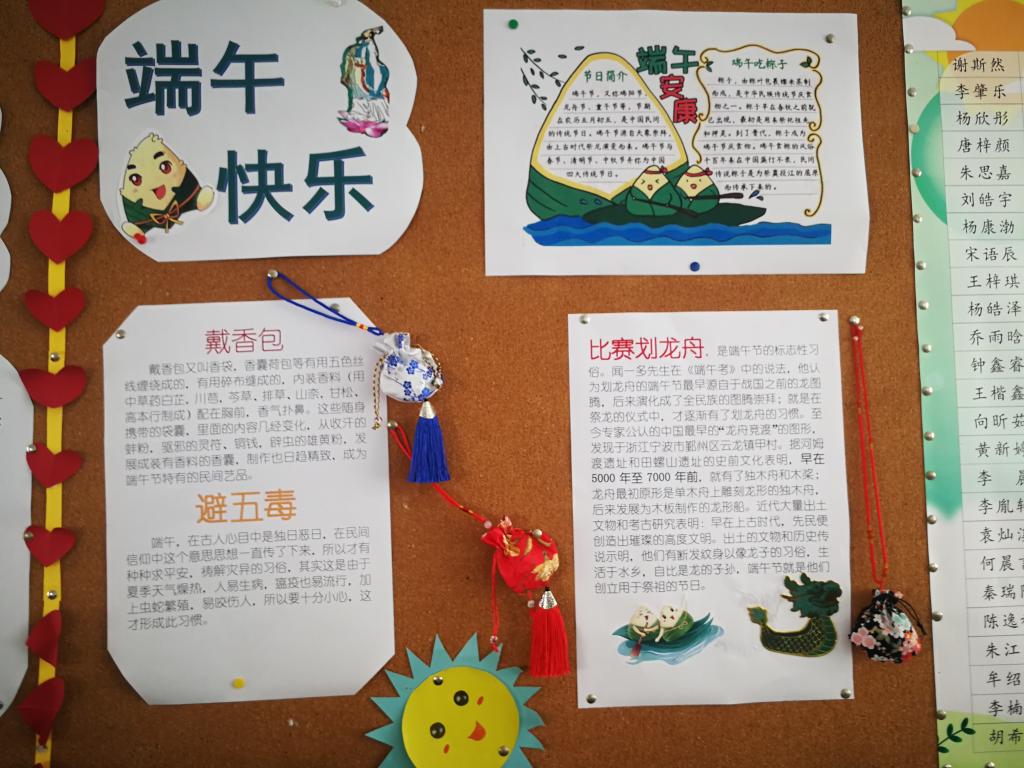 端午
快乐
端午
安
康
节日简介
端午节，又称端阳节、
龙舟节、重午节等，节期
在农历五月初五，是中国民间
的传统节日。端午节源自天象崇拜，
由上古时代祭龙演变而来。端午节与
春节、清明节、中秋节并称为中国
四大传统节日。
端午吃粽子
粽子，由粽叶包裹糯米蒸制
而成，是中华民族传统节庆食
物之一。粽子早在春秋之前就
已出现，最初是用来祭祀祖先
和神灵。到了晋代，粽子成为
端午节庆食物。端午食粽的风俗
千百年来在中国盛行不衰，民间
传说粽子是为祭奠投江的屈原
而传承下来的。
戴香包
戴香包又叫香袋，香囊荷包等有用五色丝
线缠绕成的，有用碎布缝成的，内装香料（用
中草药白芷，川芎，芩草，排草，山奈，甘松，
高本行制成）配在胸前，香气扑鼻。这些随身
携带的袋囊，里面的内容几经变化，从收汗的
蚌粉，驱邪的灵符，铜钱，辟虫的雄黄粉，发
展成装有香料的香囊，制作也日趋精致，成为
端午节特有的民间艺品。
避五毒
端午，在古人心目中是独日恶日，在民间
信仰中这个意思思想一直传了下来，所以才有
种种求平安，祷解灾异的习俗，其实这是由于
夏季天气燥热，人易生病，瘟疫也易流行，加
上虫蛇繁殖，易咬伤人，所以要十分小心，这
才形成此习惯。
比赛划龙舟，是端午节的标志性习
俗。闻一多先生在《端午考》中的说法，他认
为划龙舟的端午节最早源自于战国之前的龙图
腾，后来演化成了全民族的图腾崇拜；就是在
祭龙的仪式中，才逐渐有了划龙舟的习惯。至
今专家公认的中国最早的“龙舟竞渡”的图形，
发现于浙江宁波市鄞州区云龙镇甲村。据河姆
渡遗址和田螺山遗址的史前文化表明，早在
5000 年至 7000 年前，就有了独木舟和木桨；
龙舟最初原形是单木舟上雕刻龙形的独木舟，
后来发展为木板制作的龙形船。近代大量出土
文物和考古研究表明：早在上古时代，先民便
创造出璀璨的高度文明。出土的文物和历史传
说示明，他们有断发纹身以像龙子的习俗，生
活于水乡，自比是龙的子孙，端午节就是他们
创立用于祭祖的节日。
谢斯然
李肇乐
杨欣彤
唐梓颜
朱思嘉
刘皓宇
杨康渤
宋语辰
王梓琪
杨皓泽
乔雨晗
钟鑫睿
王楷鑫
向昕茹
黄新婷
李
李胤
袁灿
何晨
秦瑞
陈逸
朱江
牟绍
李楠
胡希